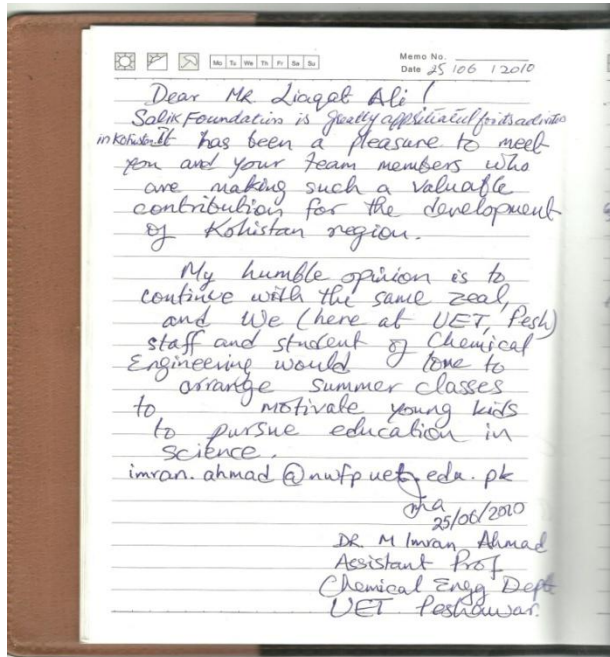 Mo Tu We Th Fr Sa Su
Memo No.
Date 25/06/2010
Dear MR Liaqat Ali!
Salik Foundation is greatly for its activities
in Kohistan It has been a pleasure to meet
you and your team members who
are making such a valuable
contribution for the development
of Kohistan region.
My humble opinion is to
continue with the same zeal,
and We (here at UET, Pesh)
staff and student of Chemical
Engineering would love to
arrange summer classes
to motivate young kids
to pursue education in
science.
imran.ahmad@nwfpuet.edu.pk
25/06/2010
DR. M Imran Ahmad
Assistant Prof
Chemical Engg Deptt
UET Peshawar.